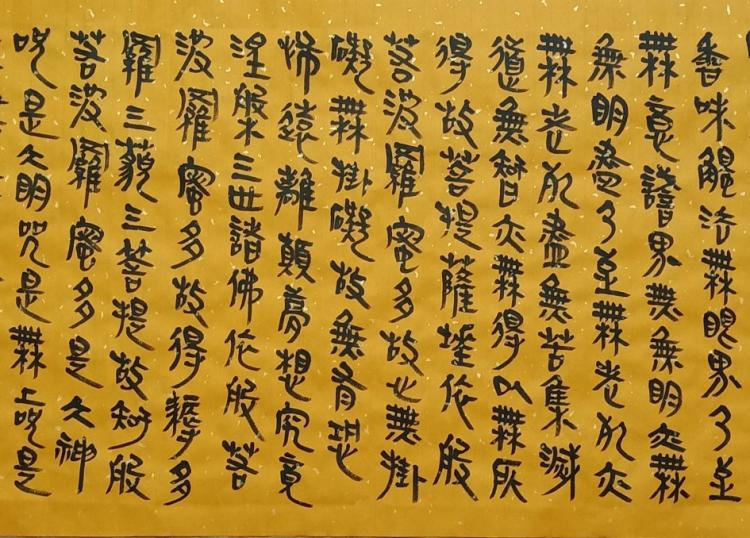 香味觸法無眼界乃至
無意識界無無明亦無
無明盡乃至無老死亦
無老死盡無苦集滅
道無智亦無得以無所
得故菩提薩埵依般
若波羅蜜多故心無掛
礙無掛礙故無有恐
怖遠離顛夢想究竟
涅槃三世諸佛依般若
波羅蜜多故得耨多
羅三藐三菩提故知般
若波羅蜜多是大神
咒是大明咒是無上咒是